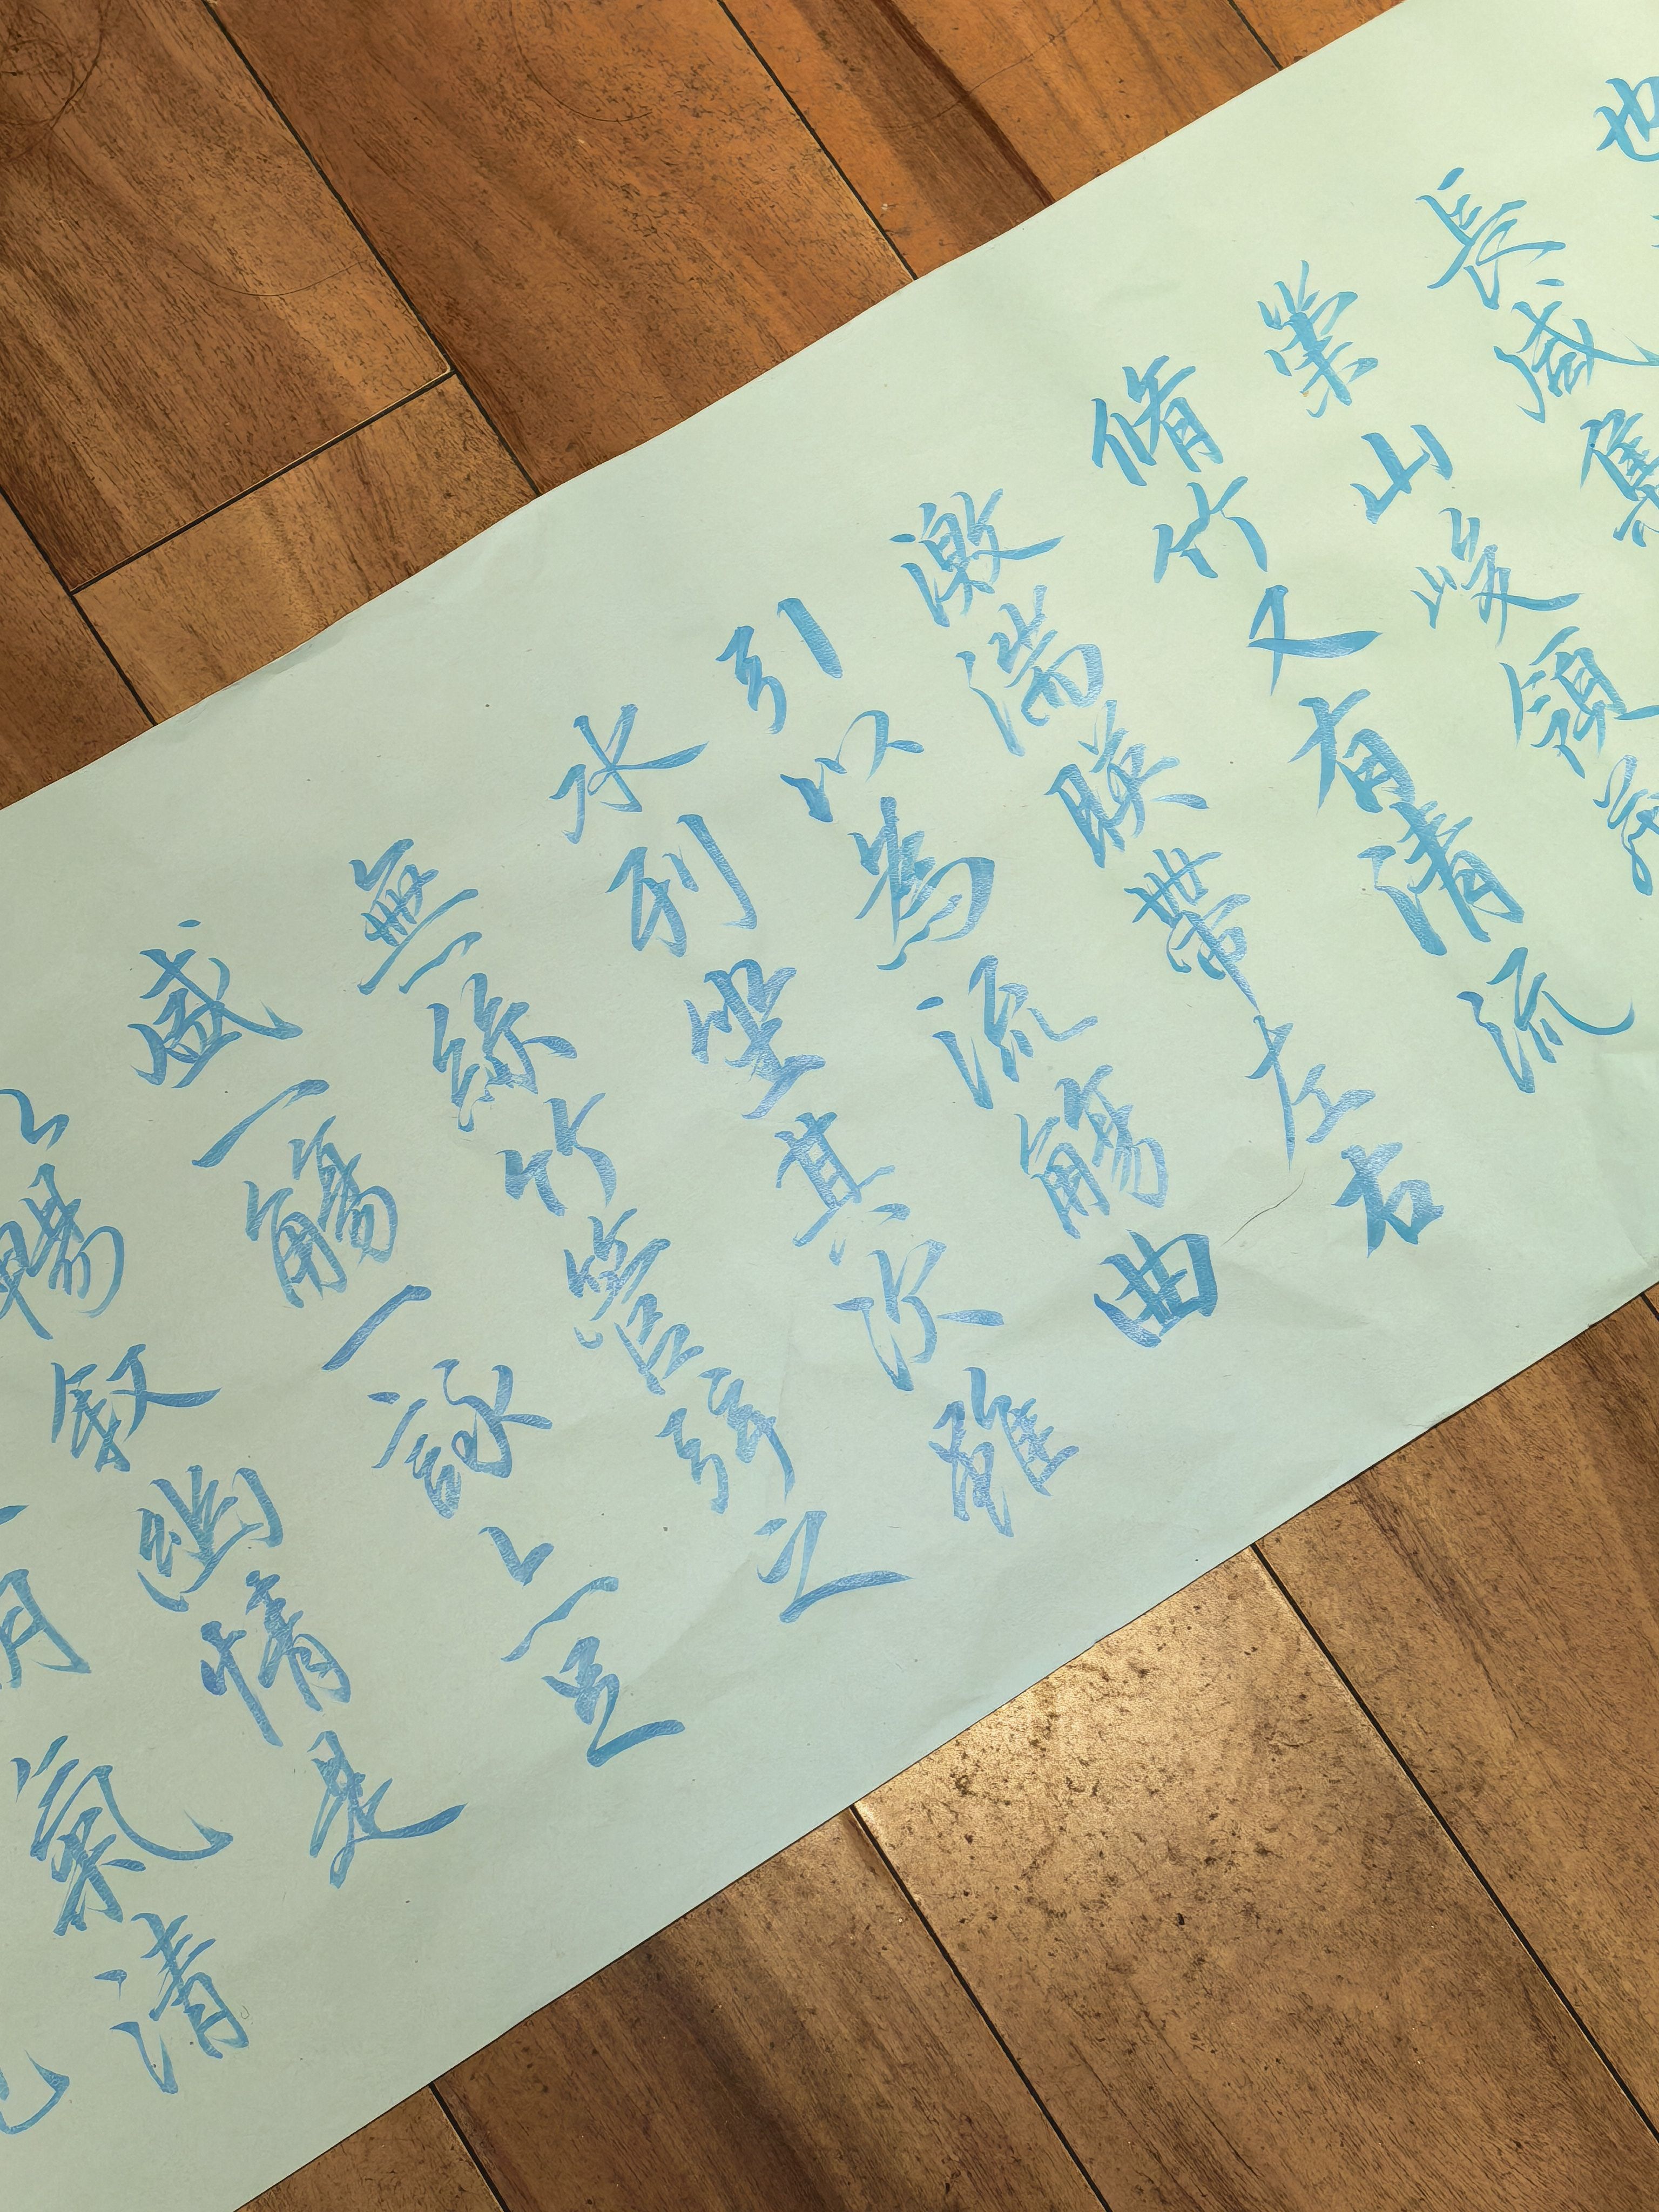 也
長咸集
崇山峻領
脩竹又有清流
激湍暎帶左右
引以為流觴曲
水列坐其次雖
無絲竹管弦之
盛一觴一詠亦足
以暢叙幽情是
氣清